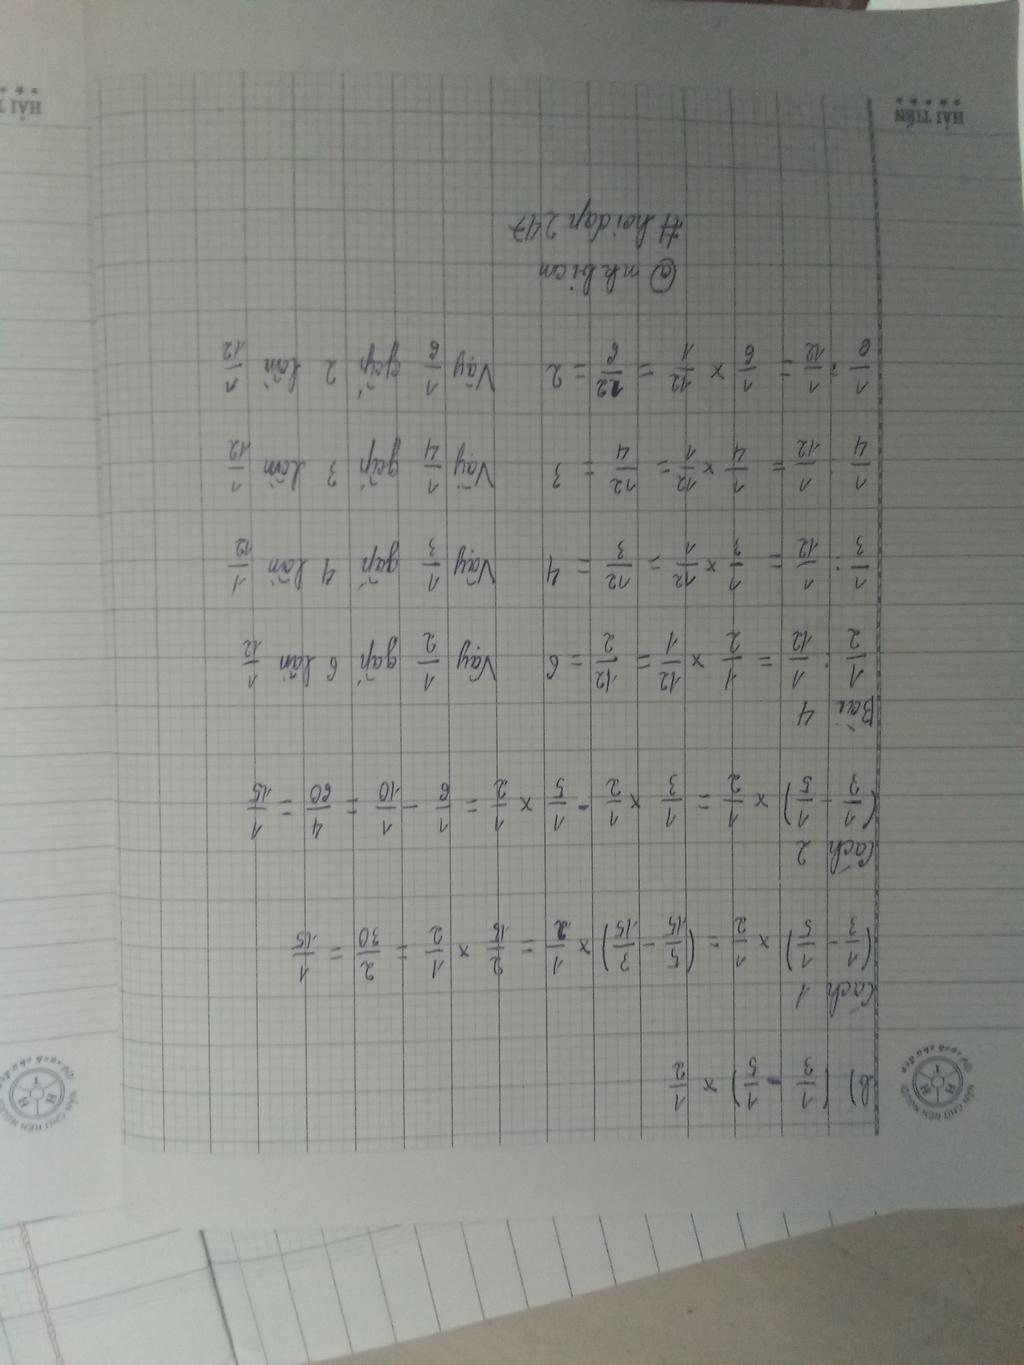 b) (1/3 - 1/5) × 1/2
Cách 1
(1/3 - 1/5) × 1/2 = (5/15 - 3/15) × 1/2 = 2/15 × 1/2 = 2/30 = 1/15
Cách 2
(1/3 - 1/5) × 1/2 = 1/3 × 1/2 - 1/5 × 1/2 = 1/6 - 1/10 = 4/60 = 1/15
Bài 4
1/2 : 1/12 = 1/2 × 12/1 = 12/2 = 6 Vậy 1/2 gấp 6 lần 1/12
1/3 : 1/12 = 1/3 × 12/1 = 12/3 = 4 Vậy 1/3 gấp 4 lần 1/12
1/4 : 1/12 = 1/4 × 12/1 = 12/4 = 3 Vậy 1/4 gấp 3 lần 1/12
1/6 : 1/12 = 1/6 × 12/1 = 12/6 = 2 Vậy 1/6 gấp 2 lần 1/12
#hoidap247
HẢI TIẾN